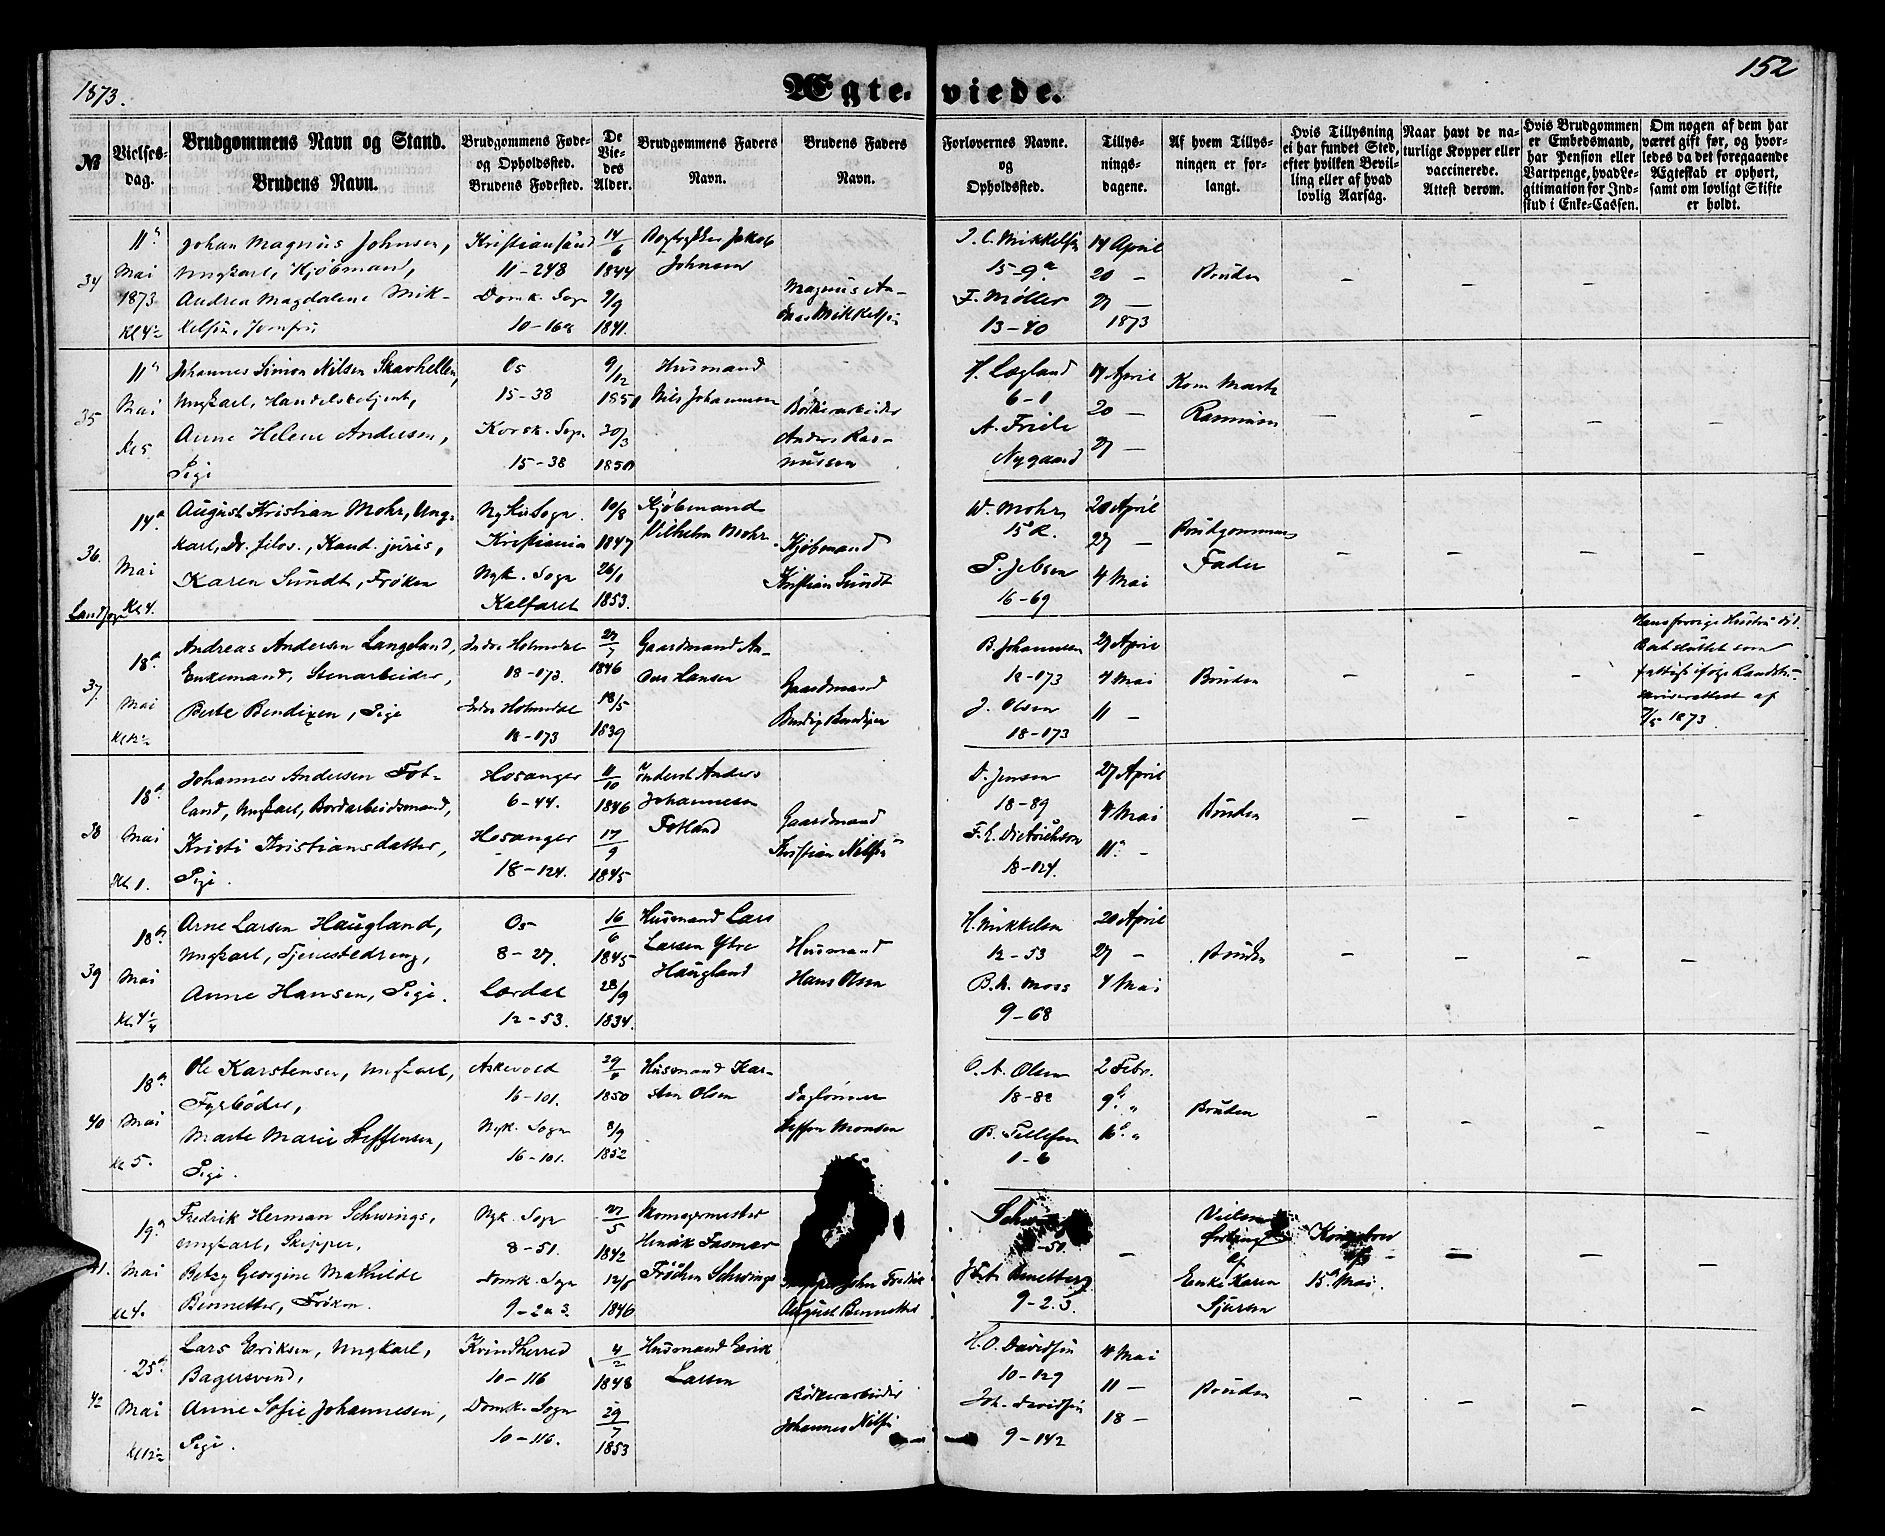 1873.
Ægteviede.
152
№
Vielses-
dag.
Brudgommens Navn og Stand.
Brudens Navn.
Brudgommens Føde-
og Opholdssted.
Brudens Fødested.
De
Vie-
des
Alder.
Brudgommens Faders
Navn.
Brudens Faders
Navn.
Forlovernes Navne.
og
Opholdssted.
Tillys-
nings-
dagene.
Af hvem Tillys-
ningen er for-
langt.
Hvis Tillysning
ei har fundet Sted,
efter hvilken Bevil-
ling eller af hvad
lovlig Aarsag.
Naar havt de na-
turlige Kopper eller
vaccinerede.
Attest derom.
Hvis Brudgommen
er Embedsmand,
har Pension eller
Vartpenge, hvad Le-
gitimation for Ind-
skud i Enke-Cassen.
Om nogen af dem har
været gift før, og hvor-
ledes da det foregaaende
Ægteskab er ophørt,
samt om lovligt Skifte
er holdt.
34
11te
Mai
1873
Kl 4½
Johan Magnus Johnsen,
Ungkarl, Kjøbmand,
Andrea Magdalene Mik-
kelsen, Jomfru
Kristiansund
11-248
Domk. Sogn
10-16a
14/6
1844
9/9
1841.
Bogtrykker Jakob
Johnsen
Magnus An-
dreas Mikkelsen
J. C. Mikkelsen
15-9a
F. Møller
13-40
14 April
20 -
27 -
1873
Bruden
35
11te
Mai
Kl 5.
Johannes Simon Nilsen Skarhellen,
Ungkarl, Handelsbetjent,
Anne Helene Andersen,
Pige
Os
15-38
Korsk. Sogn.
15-38
9/12
1851
30/3
1850
Husmand
Nils Johannesen
Bødkerarbeider
Anders Ras-
mussen
H. Lægland
6-1
A. Friele
Nygaard
14 April
20 -
27 -
Kom. Marts
Rasmusen
36.
14de
Mai
Kl 4.
August Kristian Mohr, Ung-
karl, Dr. filos., Kand. juris,
Karen Sundt, Frøken
Nykirk Sogn.
Kristiania
Nyk. Sogn
Kalfaret
10/8
1847
26/1
1853.
Kjøbmand
Vilhelm Mohr
Kjøbmand
Kristian Sundt
W. Mohr,
15 R.
P. Jebsen
16-69
20 April
27 -
4 Mai
Brudgommens
Fader
Landsogn
37
18de
Mai
Kl 12½
Andreas Andersen Langeland,
Enkemand, Stenarbeider,
Berte Bendixen, Pige
Indre Holmedal
18-173.
Indre Holmedal
18-173
27/7
1846
18/5
1839
Gaardmand An-
ders Hansen
Gaardmand
Bendix Bendixen
B. Johannesen
18-173
J. Olsen
18-173
27 April
4 Mai
11 -
Bruden
Hans forrige Hustrus
Bo er sluttet som
fattigt ifølge
af
7/5 1873.
38
18de
Mai
Kl. 1.
Johannes Andersen Fot-
land, Ungkarl, Bordarbeidsmand,
Kristi Kristiansdatter,
Pige.
Hosanger
6-44.
Hosanger
18-124.
11/10
1846
17/9
1845
Inderst Anders
Johannesen
Fotland
Gaardmand
Kristian Nilsen
D. Jensen
18-89
F. E. Dietrichson
18-124.
27 April
4 Mai
11 -
Bruden
39
18de
Mai
Kl. 4¼
Arne Larsen Haugland,
Ungkarl, Tjenestedreng,
Anne Hansen, Pige.
Os
8-27.
Lærdal
12-53.
16/6
1845
28/9
1834.
Husmand Lars
Larsen Ytre
Haugland
Husmand
Hans Olsen
H. Mikkelsen
12-53
B. N. Moss
9-68
20 April
27 -
4 Mai
Bruden
40
18de
Mai
Kl 5.
Ole Karstensen, Ungkarl,
Fyrbøder,
Marte Marie Steffensen,
Pige.
Askevold
16-101.
Nyk. Sogn
16-101.
1850
8/9
1852
Husmand Kar-
sten Olsen
Daglønner
Steffen Monsen
O. A. Olsen
18-88
B. Tellefsen
1-6
2 Febr.
9de "
16de "
Bruden
41.
19de
Mai
Kl 4.
Fredrik Herman Schwings,
Ungkarl, Skipper.
Betzy Georgine Mathilde
Bennetter, Frøken
Nyk. Sogn
8-51.
Domk. Sogn
9-2a3.
27/5
1842
1846
Skomagermester
Henrik Fasmer
Frøchen Schwings
John Fredrik
August Bennetter
9-2.3.
forlangt
af
Enke Karen
Sjursen
Kongebrev
15de Mai.
42
25de
Mai
Kl 12½
Lars Eriksen, Ungkarl,
Bagersvend,
Anne Sofie Johannesen,
Pige.
Kvindherred
10-116
Domk. Sogn
10-116.
4/2
1848
29/7
1853
Husmand Erik
Larsen
Bødkerarbeider
Johannes Nilsen
H. O. Davidsen
10-129
Joh. Davidsen
9-142
4 Mai
11 -
18 -
Bruden